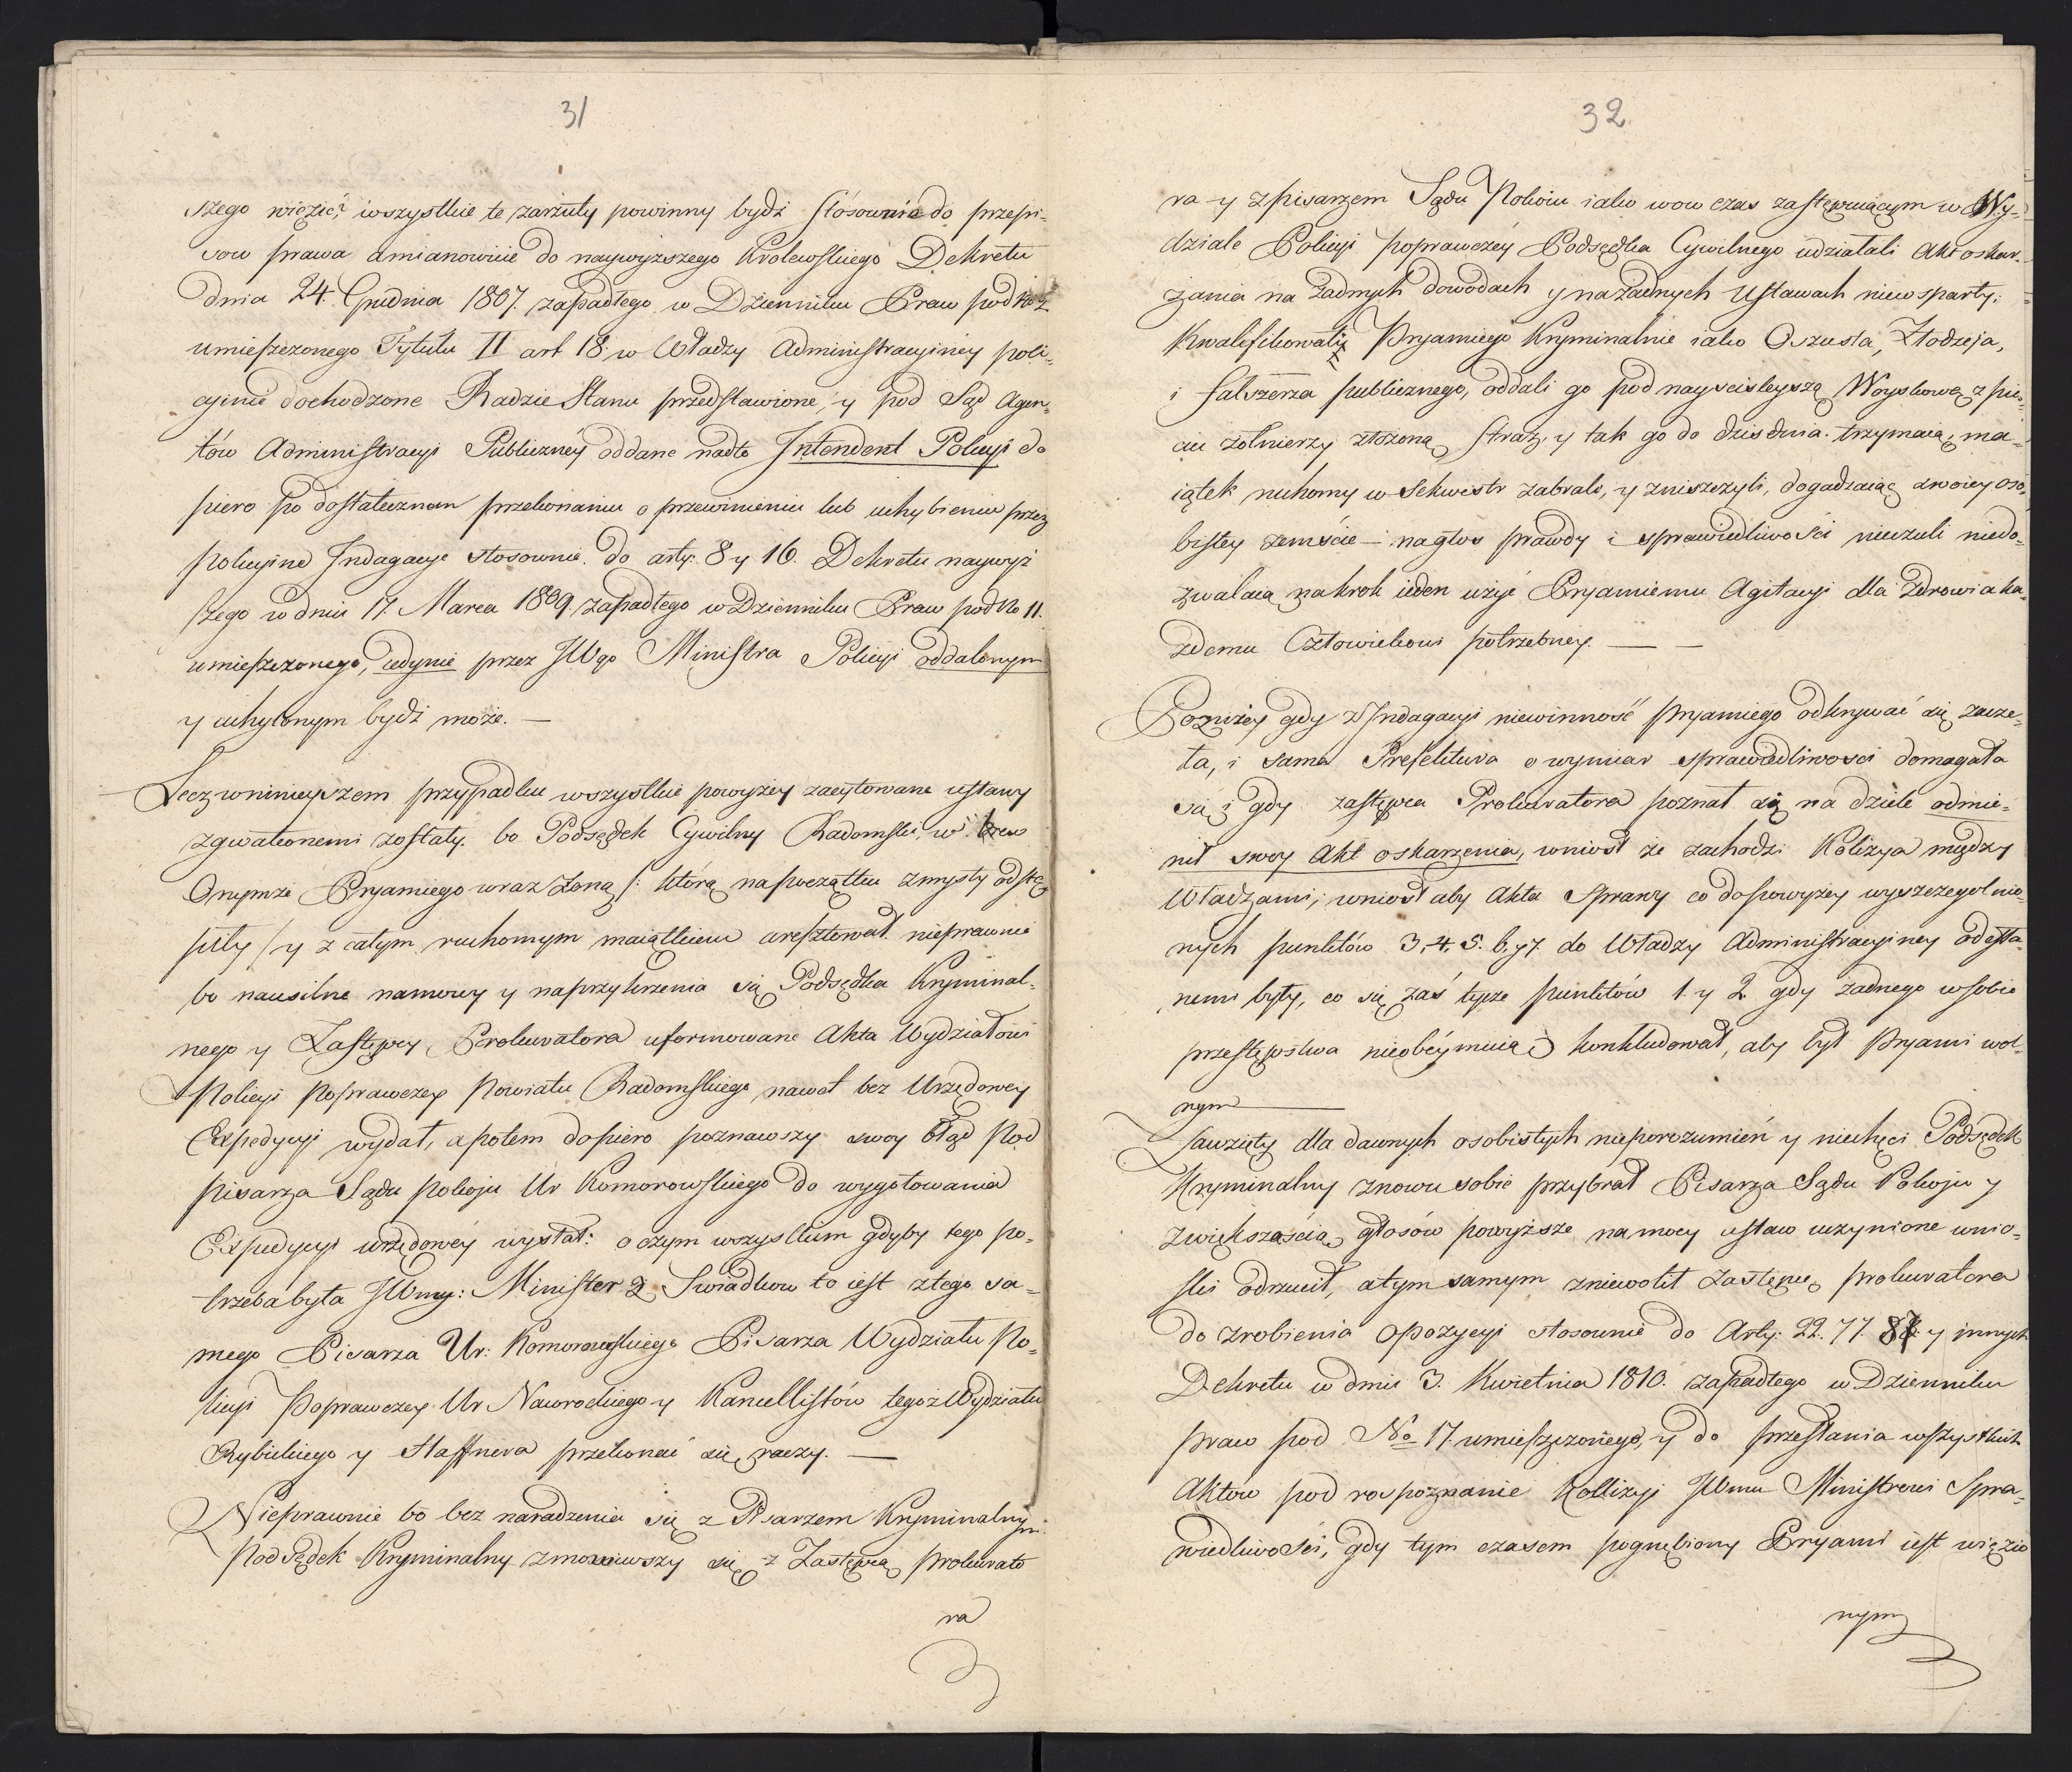 31
szego więzić, wszystkie te zarzuty powinny bydź stósownie do przepi-
sow prawa amianowicie do naywyzszego Krolewskiego Dekretu
dnia 24. Grudnia 1807. zapadłego w Dzienniku Praw pod No 2
umieszczonego Tytułu II art 18 w Władzy Administracyiney poli-
cyinie dochodzone Radzie Stanu przedstawione, y pod Sąd Agen-
tów Administracyi Publiczney oddane nadto Intendent Policyi do
piero po dostatecznem przekonaniu o przewinieniu lub uchybieniu przez
policyine Indagacye stosownie do arty: 8 y 16. Dekretu naywyż
szego w dniu 17. Marca 1809 zapadłego w Dzienniku Praw pod No 11.
umieszczonego, iedynie przez JWgo Ministra Policyi oddalonym
y uchylonym bydź może. —
Lecz wninieyszem przypadku wszystkie powyżey zacytowane ustawy
zgwałconemi zostały. bo Podsędek Cywilny Radomski, w brew
Onymże Pryamiego wraz Zoną /: którą napoczątku zmysły odstę
piły / y z całym ruchomym maiątkiem aresztował nieprawnie
bo nausilne namowy y naprzykrzenia się Podsędka Kryminal-
nego y Zastępcy Prokuratora uformowane Akta Wydziałowi
Policyi Poprawczey Powiatu Radomskiego, nawet bez Urzędowey
Expedycyi wydał, apotem dopiero poznawszy swoy błąd Pod
pisarza Sądu pokoju Ur Komorowskiego do wygotowania
Expedycyi urzędowéy wysłał: o czym wszystkim gdyby tego po-
trzeba była JWny: Minister z Swiadkow to iest ztego sa-
mego Pisarza Ur: Komorowskiego Pisarza Wydziału Po-
licyi Poprawczey Ur Nawrockiego y Kancellistów tegoż Wydziału
Rybickiego y Haffnera przekonać się raczy. —
Nieprawnie bo bez naradzenia się z Pisarzem Kryminalnym
Podsądek Kryminalny zmowiwszy się z Zastępcą prokurato
ra
32
ra y zpisarzem Sądu Pokoiu iako wow czas zastępuiącym w Wy-
dziale Policyi poprawczéy Podsędka Cywilnego udziałali Akt oskar-
żania na żadnych dowodach y nażadnych Ustawach niewsparty;
Kwalifikowali Pryamiego Kryminalnie iako Oszusta, Złodzeja,
i fałszerza publicznego, oddali go pod nayscisleyszą Woyskową z pie-
ciu żołnierzy złożoną straż, y tak go do dziś dnia trzymaią, ma-
iątek ruchomy w Sekwestr zabrali, y zniszczyli, dogadzaiąc swoiey oso-
bistey zemście — nagłos prawdy i sprawiedliwości nieczuli niedo-
zwalaią nakrok ieden użyć Pryamiemu Agitacyi dla Zdrowia ka-
żdemu Człowiekowi potrzebney. — —
Poznizey gdy z Indagacyi niewinność Pryamiego odkrywać się zacze-
ła, i sama Prefektura o wymiar sprawiedliwosci domagała
się, gdy zastępca Prokuratora poznał się na dziele odmie-
nił swoy Akt oskarzenia, wniosł że zachodzi Kolizya między
Władzami; wniosł aby Akta Sprawy co do powyżey wyszczegolnio-
nych punktów 3, 4, 5. 6. y 7. do Władzy Administracyiney odesła-
nemi były, co się zaś tycze punktów 1. y 2. gdy żadnego w sobie
przestępstwa nieobeymuią konkludował, aby był Pryami wol-
nym
Zawzięty dla dawnych osobistych nieporozumień y niechęci Podsędek
Kryminalny znowu sobie przybrał Pisarza Sądu Pokoju y
zwiększością głosów powyższe na mocy ustaw uczynione wnio-
ski odrzucił, atym samym zniewolił Zastępcę prokuratora
do zrobienia opozycyi stosownie do Arty: 22. 77. y innych
Dekretu w dniu 3. Kwietnia 1810. zapadłego w Dzienniku
praw pod No 17. umieszczonego, y do przesłania wszystkich
Aktow pod rospoznanie Kollizyi JWmu Ministrowi Spra-
wiedliwości, gdy tym czasem pognębiony Pryami iest więzio
nym